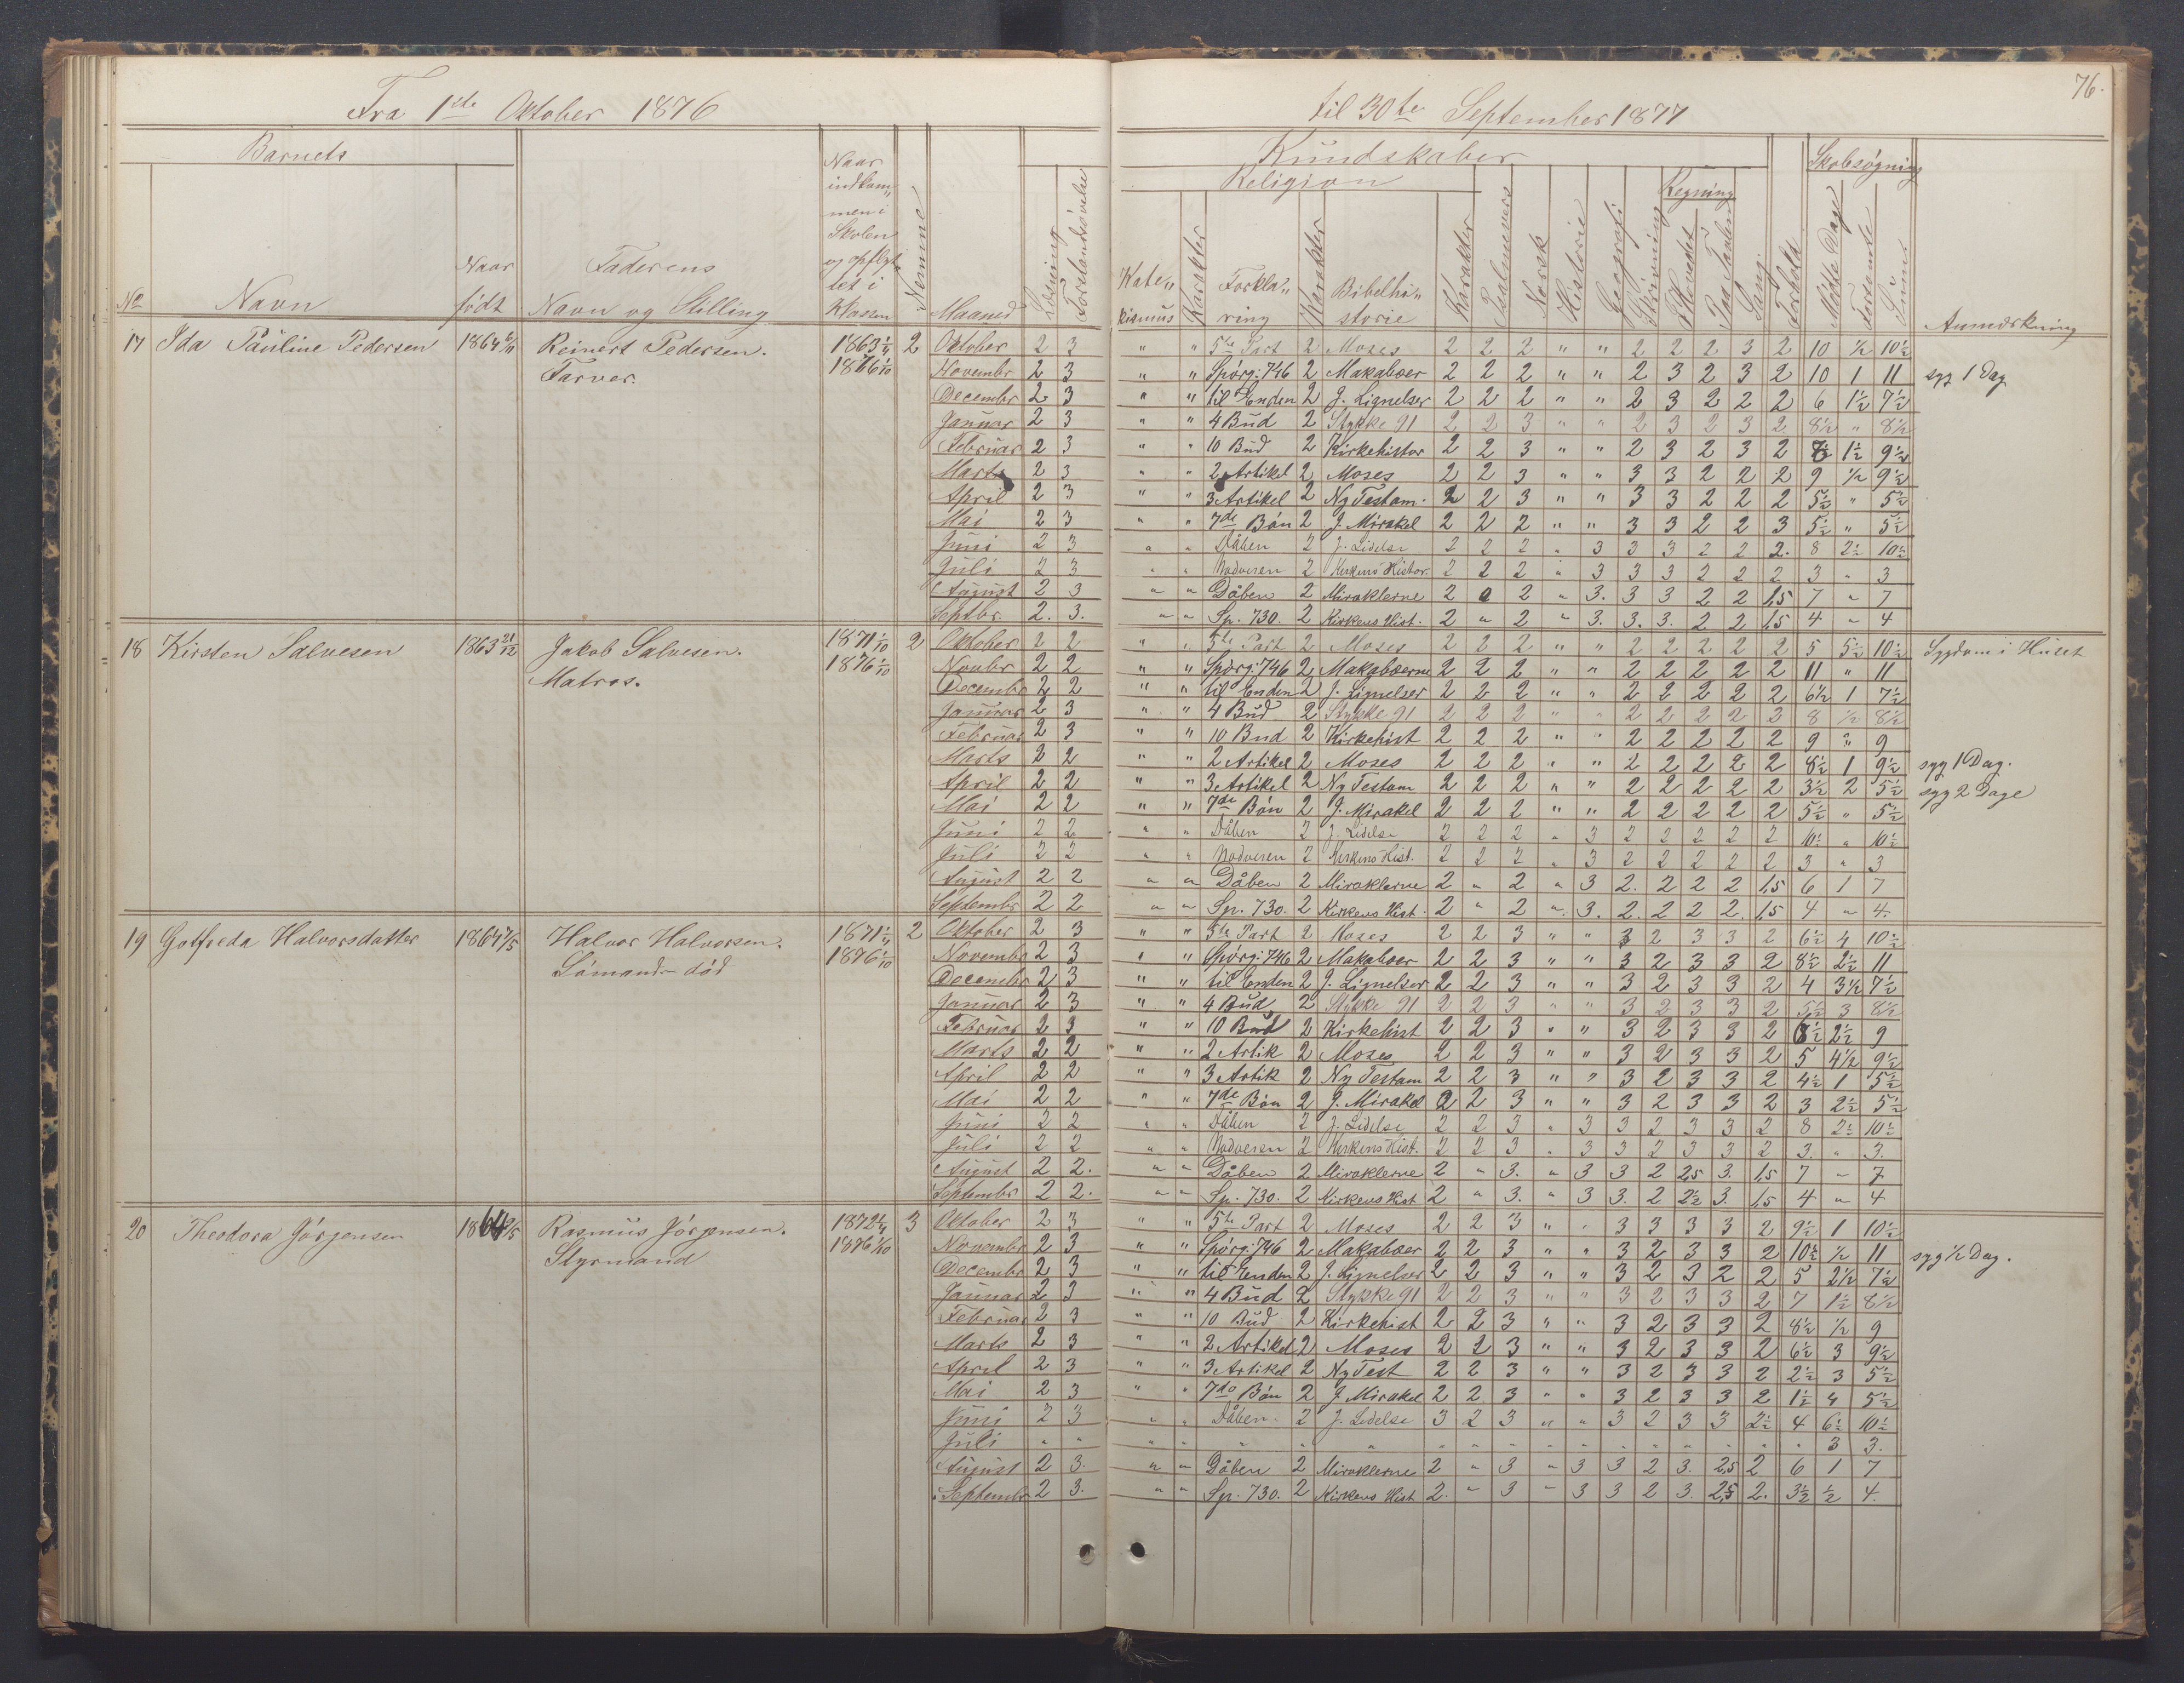 76.
Fra 1ste Oktober 1876 til 30te September 1877
Barnets Kundskaber Skolesøgning
Religion Regning
No Navn Naar født Faderens Navn og Stilling Naar indkom„ men i Skolen og opflyt tet i Klassen Nemme Maaned Læsning Forstandsøvelse Kate„ kismus Karakter Forkla„ ring Karakter Bibelhi„ storie Karakter Psalmevers Norsk Historie Geografi Skrivning I Hovedet Paa Tavlen Sang. Forhold Mødte Dage Forsømte Sum. Anmærkning
17 Ida Pauline Pedersen 1864 Reinert Pedersen. 2 Oktober 2 3 " " 5te Part 2 Moses 2 2 2 " " 2 2 2 3 2 10 ½ 10½
Farver. 1876 1/10 Novembr 2 3 " " Spørg: 746 2 Makabæer 2 2 2 " " 2 3 2 3 2 10 1 11 syg 1 Dag
Decembr 2 3 " " til Enden 2 J. Lignelser 2 2 2 " " 2 3 2 2 2 6 1½ 7½
Januar 2 3 " " 4 Bud 2 Stykke 91 2 2 3 " " 2 3 2 3 2 8½ " 8½
Februar 2 3 " " 10 Bud 2 Kirkehistor 2 2 3 " " 2 3 2 3 2 1½ 9½
Marts 2 3 " " 2 Artikel 2 Moses 2 2 3 " " 3 3 2 2 2 9 ½ 9½
April 2 3 " " 3 Artikel 2 Ny Testam. 2 2 3 " " 3 3 2 2 2 5½ " 5½
Mai 2 3 " " 7de Bøn 2 J. Mirakel 2 2 2 " " 3 3 2 2 3 5½ " 5½
Juni 2 3 " " Dåben 2 J. Lidelse 2 2 2 " 3 3 3 2 2 2. 8 2½ 10½
Juli 2 3 " " Nadveren 2 Kirkens Histor. 2 2 2 " 3 3 3 2 2 2 3 " 3
August 2 3 " " Dåben 2 Miraklerne 2 2 " 3. 3 3 2 2 1,5 7 " 7
Septbr. 2. 3. " " Sp. 730. 2 Kirkens Hist. 2 " 2 " 3. 3. 3. 2 2 1,5 4 " 4
18 Kirsten Salvesen 1863 21/12 Jakob Salvesen. 1871 1/10 2 Oktober 2 2 " " 5te Part 2 Moses 2 2 2 " " 2 2 2 2 2 5 5½ 10½ Sygdom i Huset
Matros. 1876 1/10 Novbr 2 2 " " Spørg: 746 2 Makabæerne 2 2 2 " " 2 2 2 2 2 11 " 11
Decembr 2 2 " " til Enden 2 J. Lignelser 2 2 2 " " 2 2 2 2 2 6½ 1 7½
Januar 2 3 " " 4 Bud 2 Stykke 91 2 2 2 " " 2 2 2 2 2 8 ½ 8½
Februar 2 3 " " 10 Bud 2 Kirkehist 2 2 2 " " 2 2 2 2 2 9 " 9
Marts 2 2 " " 2 Artikel 2 Moses 2 2 2 " " 2 2 2 2 2 8½ 1 9½ syg 1 Dag.
April 2 2 " " 3 Artikel 2 Ny Testam 2 2 2 " " 2 2 2 2 2 3½ 2 5½ syg 2 Dage
Mai 2 2 " " 7de Bøn 2 J. Mirakel 2 2 2 " " 2 2 2 2 2 5½ " 5½
Juni 2 2 " " Dåben 2 J. Lidelse 2 2 2 " 3 2 2 2 2 2 10½ " 10½
Juli 2 2 " " Nadveren 2 Kirkens Hist. 2 2 2 " 3 2 2 2 2 2 3 " 3
August 2 2 " " Dåben 2 Miraklerne 2 " 2 " 3 2. 2 2 2 1,5 6 1 7
Septembr 2 2 " " Sp. 730. 2 Kirkens Hist. 2 " 2 " 3. 2. 2 2 2. 1,5 4 " 4.
19 Gotfreda Halvorsdatter 1864 Halvor Halvorsen. 1871 ¼ 2 Oktober 2 3 " " 5te Part 2 Moses 2 2 3 " " 3 2 3 3 2 6½ 4 10½
Sømand - død 1876 1/10 Novembr 2 3 " " Spørg: 746 2 Makabæer 2 2 3 " " 3 2 3 3 2 8½ 2½ 11
Decembr 2 3 " " til Enden 2 J. Lignelser 2 2 3 " " 3 2 3 3 2 4 3½ 7½
Januar 2 3 " " 4 Bud 2 Stykke 91 2 2 3 " " 3 2 3 3 2 5½ 3 8½
Februar 2 3 " " 10 Bud 2 Kirkehist 2 2 3 " " 3 2 3 3 2 2½ 9
Marts 2 2 " " 2 Artik 2 Moses 2 2 3 " " 3 2 3 3 2 5 4½ 9½
April 2 2 " " 3 Artik 2 Ny Testam 2 2 3 " " 3 2 3 3 2 4½ 1 5½
Mai 2 2 " " 7de Bøn 2 J. Mirakel 2 2 3 " " 3 2 3 3 2 3 2½ 5½
Juni 2 2 " " Dåben 2 J. Lidelse 2 2 3 " 3 3 2 3 3 2 8 2½ 10½
Juli 2 2 " " Nadveren 2 Kirkens Hist. 2 2 3 " 3 3 2 3 3 2 3. " 3.
August 2 2. " " Dåben 2 Miraklerne 2 " 3. " 3 3 2 2,5 3. 1,5 7 " 7
Septembr 2 2. " " Sp. 730. 2 Kirkens Hist 2 " 3. " 3 3. 2 2½ 3. 1,5 4 " 4
20 Theodora Jørgensen 1864 Rasmus Jørgensen. 1872 3 Oktober 2 3 " " 5te Part 2 Moses 2 2 3 " " 3 3 3 3 2 9½ 1 10½
Styrmand 1876 1/10 Novembr 2 3 " " Spørg: 746 2 Makabæer 2 2 3 " " 3 2 3 3 2 10½ ½ 11 syg ½ Dag.
Decembr 2 3 " " til Enden 2 J. Lignelser 2 2 3 " " 3 2 3 2 2 5 2½ 7½
Januar 2 3 " " 4 Bud 2 Stykke 91 2 2 3 " " 3 2 3 3 2 7 1½ 8½
Februar 2 3 " " 10 Bud 2 Kirkehist 2 2 3 " " 3 2 3 3 2 8½ ½ 9
Marts 2 3 " " 2 Artikel 2 Moses 2 2 3 " " 3 2 3 3 2 6½ 3 9½
April 2 3 " " 3 Artikel 2 Ny Test 2 2 3 " " 3 2 3 3 2 2½ 3 5½
Mai 2 3 " " 7de Bøn 2 J. Mirakel 2 2 3 " " 3 2 3 3 2 1½ 4 5½
Juni 2 3 " " Dåben 2 J. Lidelse 3 2 3 " " 3 2 3 3 2½ 4 6½ 10½
Juli " " " " " " " " " " " " " " " " " " " 3 3.
August 2 3. " " Dåben 2 Miraklerne 2 " 3 " 3 3 2 3. 2,5 2 6 1 7
Septembr 2 3. " " Sp. 730. 2 Kirkens Hist 2. " 3 " 3 3 2 3. 2,5 2. 3½ ½ 4.